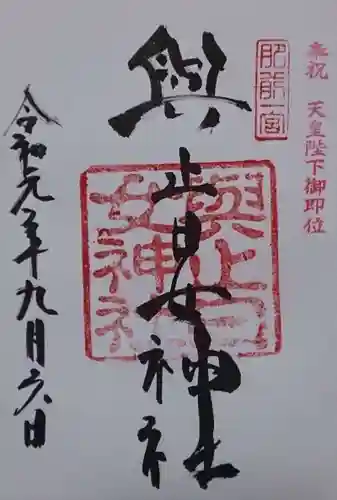 奉祝 天皇陛下御即位
肥前一宮
與止日女神社
與止日女神社
令和元年九月六日